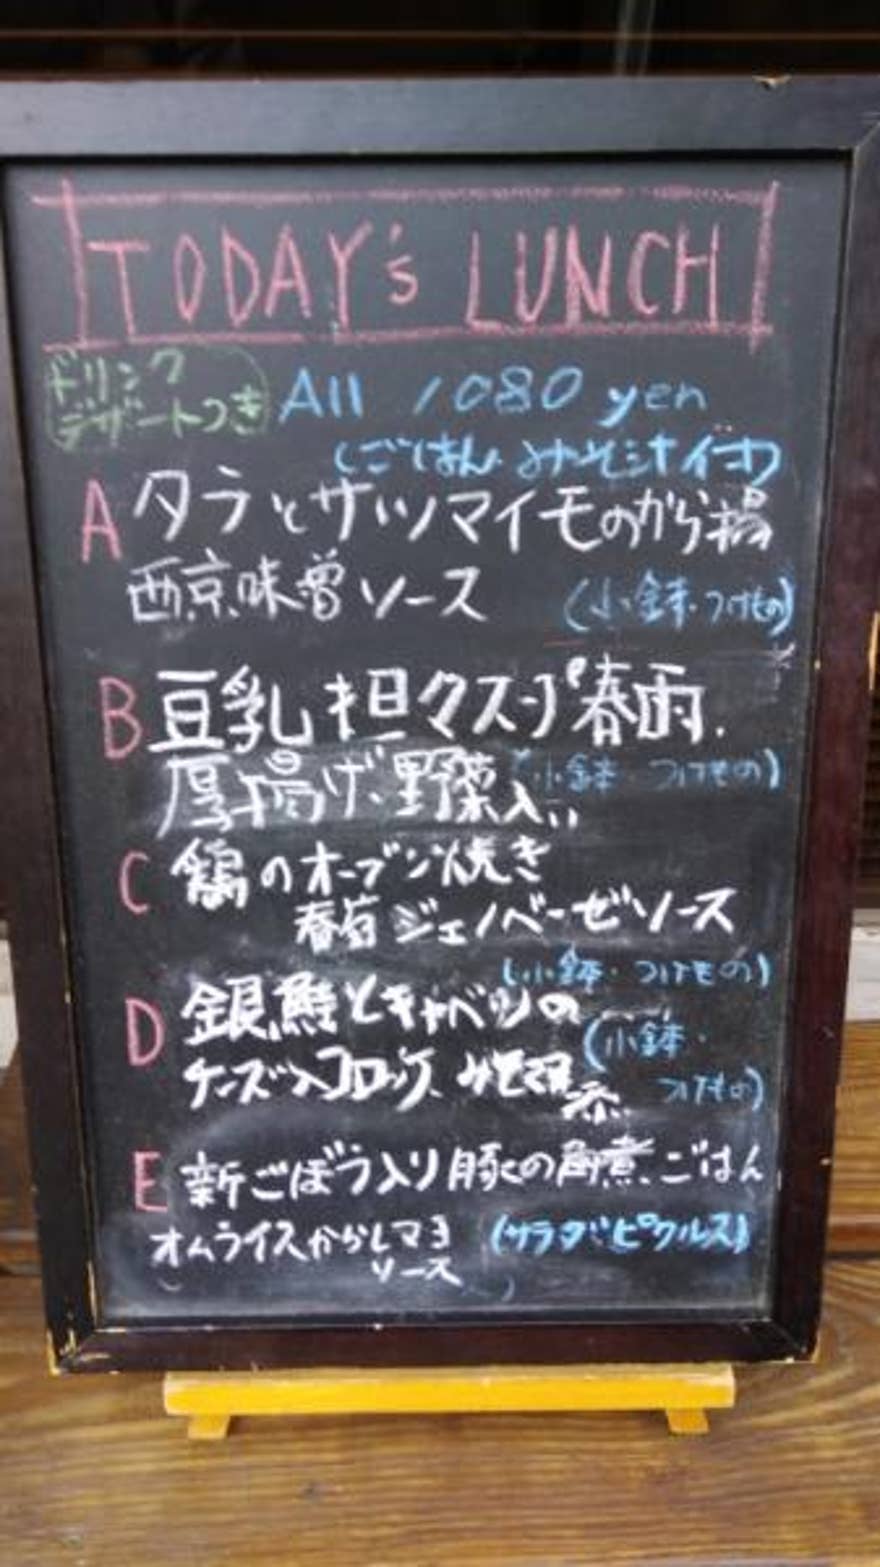 TODAY's LUNCH
ドリンク
デザートつき
All 1080 yen
(ごはん・みそ汁付)
A タラとサツマイモのから揚
西京味噌ソース (小鉢・つけもの)
B 豆乳担々スープ春雨、
厚揚げ、野菜入り (小鉢・つけもの)
C 鶏のオーブン焼き
春菊ジェノベーゼソース
(小鉢・つけもの)
D 銀鮭とキャベツの
チーズ入コロッケ、みそマヨ添
(小鉢・
つけもの)
E 新ごぼう入り豚の角煮、ごはん
オムライスからしマヨ
ソース
(サラダ・ピクルス)